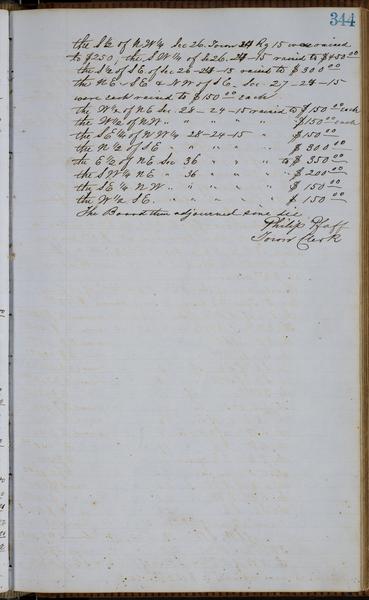 344
the S½ of N.W¼ Sec 26. Town 24 Rg 15 was raised
to $250, the S.W¼ of Sec 26. 24-15 raised to $450 00
the S½ of S.E. of Sec 26-24-15 raised to $300 00
the N.E. S.E & N.W of S.E. Sec. 27-24-15
were each raised to $150 00 each
the W½ of N.E Sec 28-24-15 raised to $150 00 each
the W½ of N.W. " " " " " $150 00 each
the S.E¼ of N.W¼ 28-24-15 " $150 00
the N½ of S.E " " " " " $300 00
the E½ of N.E Sec 36 " " " to $350 00
the S.W¼ N.E " 36 " " " $200 00
the S.E¼ N.W. " " " " " $150 00
the W½ S.E. " " " " " $150 00
The Board then adjourned sine die
Philip Pfaff
Town Clerk